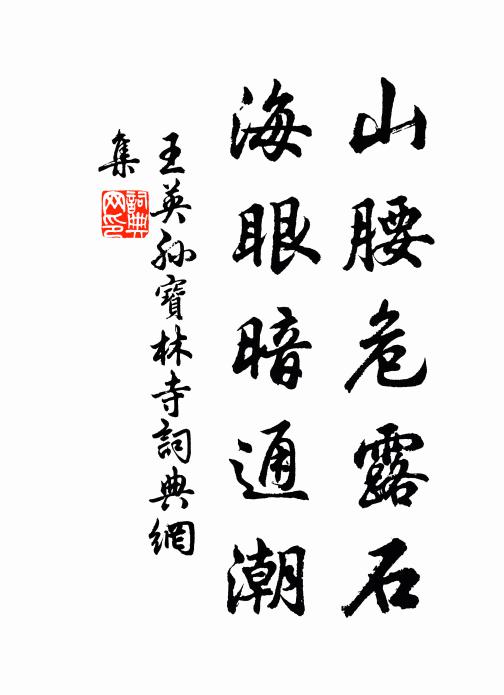 山腰危露石
海眼暗通潮
王英孫寶林寺詞典網
集
詞典
网印